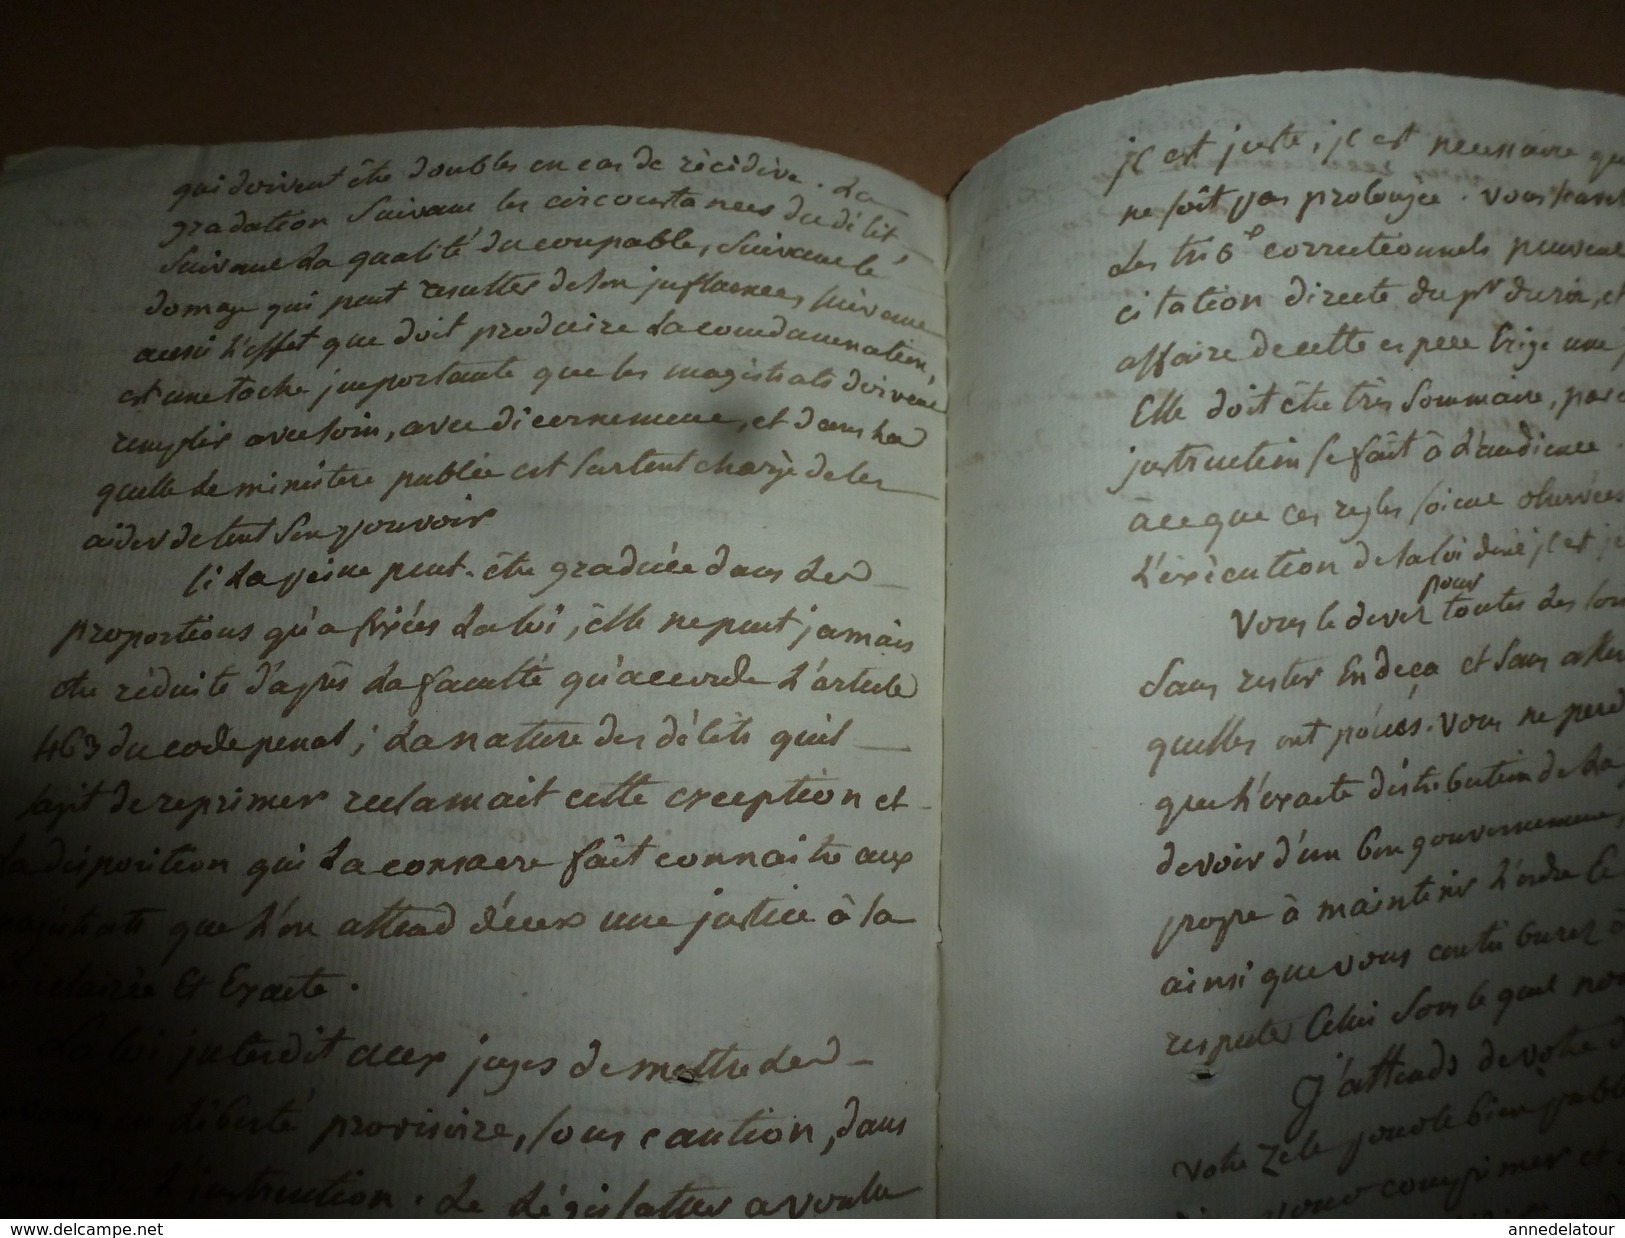 qui doivent être doubles en cas de récidive. La
gradation suivant les circonstances du délit,
suivant la qualité du coupable, suivant le
domage qui peut resulter de son jnfluence, suivant
aussi l'effet que doit produire la condamnation,
est une tache jmportante que les magistrats doivent
remplir avec soin, avec dicernement, et dans la
quelle le ministere public est surtout chargé de les
aider de tout son pouvoir
si la peine peut-être graduée dans les
proportions qu'a fixées la loi, elle ne peut jamais
être réduite d'après la faculté qu'accorde l'article
463 du code penal; la nature des délits qu'il
sagit de reprimer reclamait cette exception et
la disposition qui la consacre fait connaitre aux
magistrats que l'on attend d'eux une justice à la
éclairée et Exacte.
La loi jnterdit aux juges de mettre les
en liberté provisoire, sous caution, dans
l'jnstruction. Le Législateur a voulu
jl est juste, jl est necessaire que
ne soit pas prolongée. Vous
Les trib.x correctionnels peuvent
citation directe du pr du roi, et
affaire de cette espece Exige une
Elle doit être très sommaire, par
jnstruction se fait à l'audience.
à ce que ces regles soient observées
L'exécution de la loi
pour
Vous le devez toutes les lois
Sans rester En deça et sans aller
quelles ont posées. Vous ne perd
que l'exacte distribution de la
devoir d'un bon gouvernement,
propre à maintenir l'ordre
ainsi que vous contriburez à
respecter Celui sous le quel nou
J'attends de votre
votre zele pour le bien public
vous comprimer et
www.delcampe.net
annedelatour